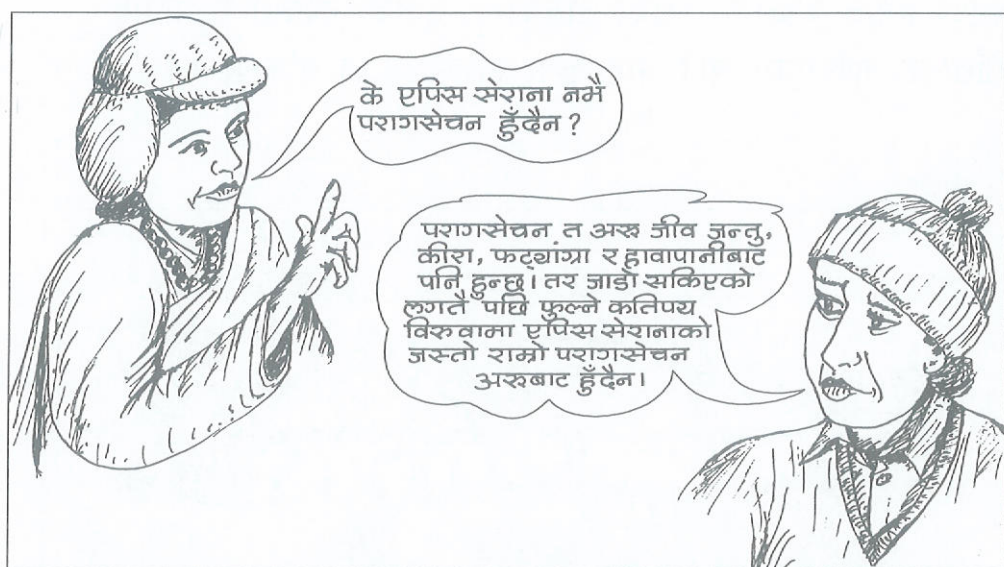 के एपिस सेराना नभै
परागसेचन हुँदैन ?
परागसेचन त अरू जीव जन्तु,
कीरा, फट्यांग्रा र हावापानीबाट
पनि हुन्छ। तर जाडो सकिएको
लगत्तै पछि फुल्ने कतिपय
विरुवामा एपिस सेरानाको
जस्तो राम्रो परागसेचन
अरुबाट हुँदैन।